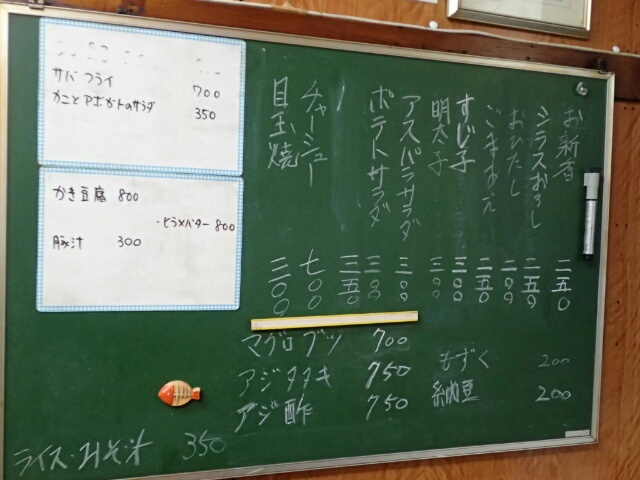 サバ フライ 700
カニとアボガトのサラダ 350
かき豆腐 800
・とうメバター 800
豚汁 300
お新香 二五〇
シラスおろし 二五〇
おひたし 二〇〇
ごまあえ 二五〇
すじ子 三〇〇
明太子 三〇〇
アスパラサラダ 三〇〇
ポテトサラダ 三〇〇
三五〇
チャーシュー 七〇〇
目玉焼 三〇〇
マグロブツ 700
アジタタキ 750
アジ酢 750
もずく 200
納豆 200
ライス・みそ汁 350